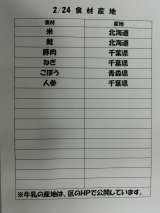 2/24 食材産地
食材 産地
米 北海道
鮭 北海道
豚肉 千葉県
ねぎ 千葉県
ごぼう 青森県
人参 千葉県
※牛乳の産地は、区のHPで公開しています。